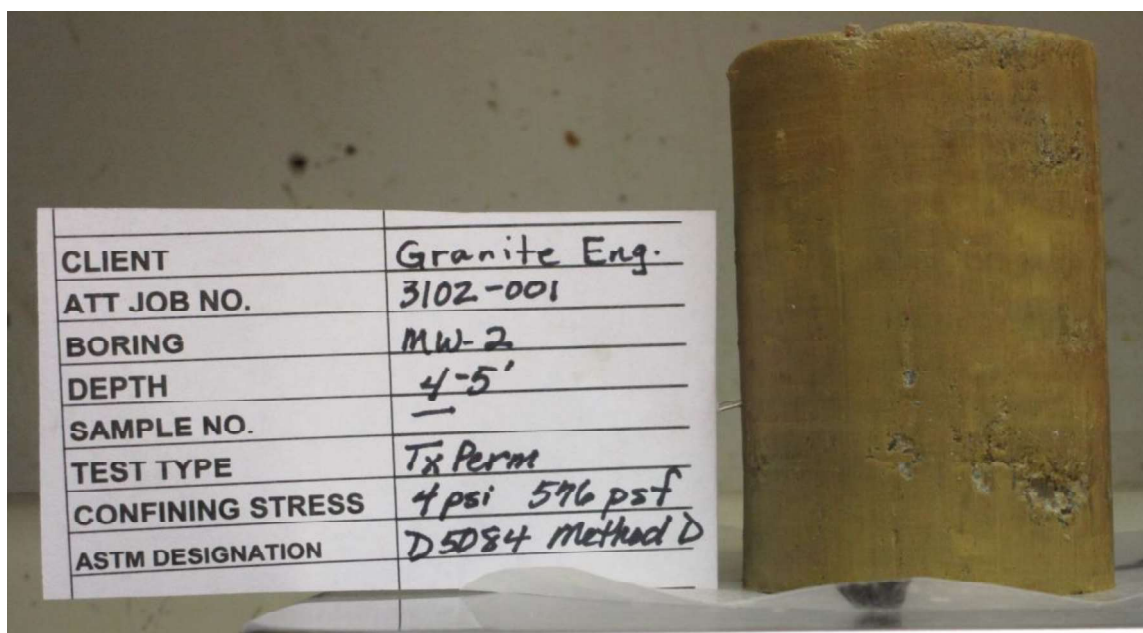 CLIENT Granite Eng.
ATT JOB NO. 3102-001
BORING MW-2
DEPTH 4-5'
SAMPLE NO. —
TEST TYPE Tx Perm
CONFINING STRESS 4 psi 576 psf
ASTM DESIGNATION D5084 Method D